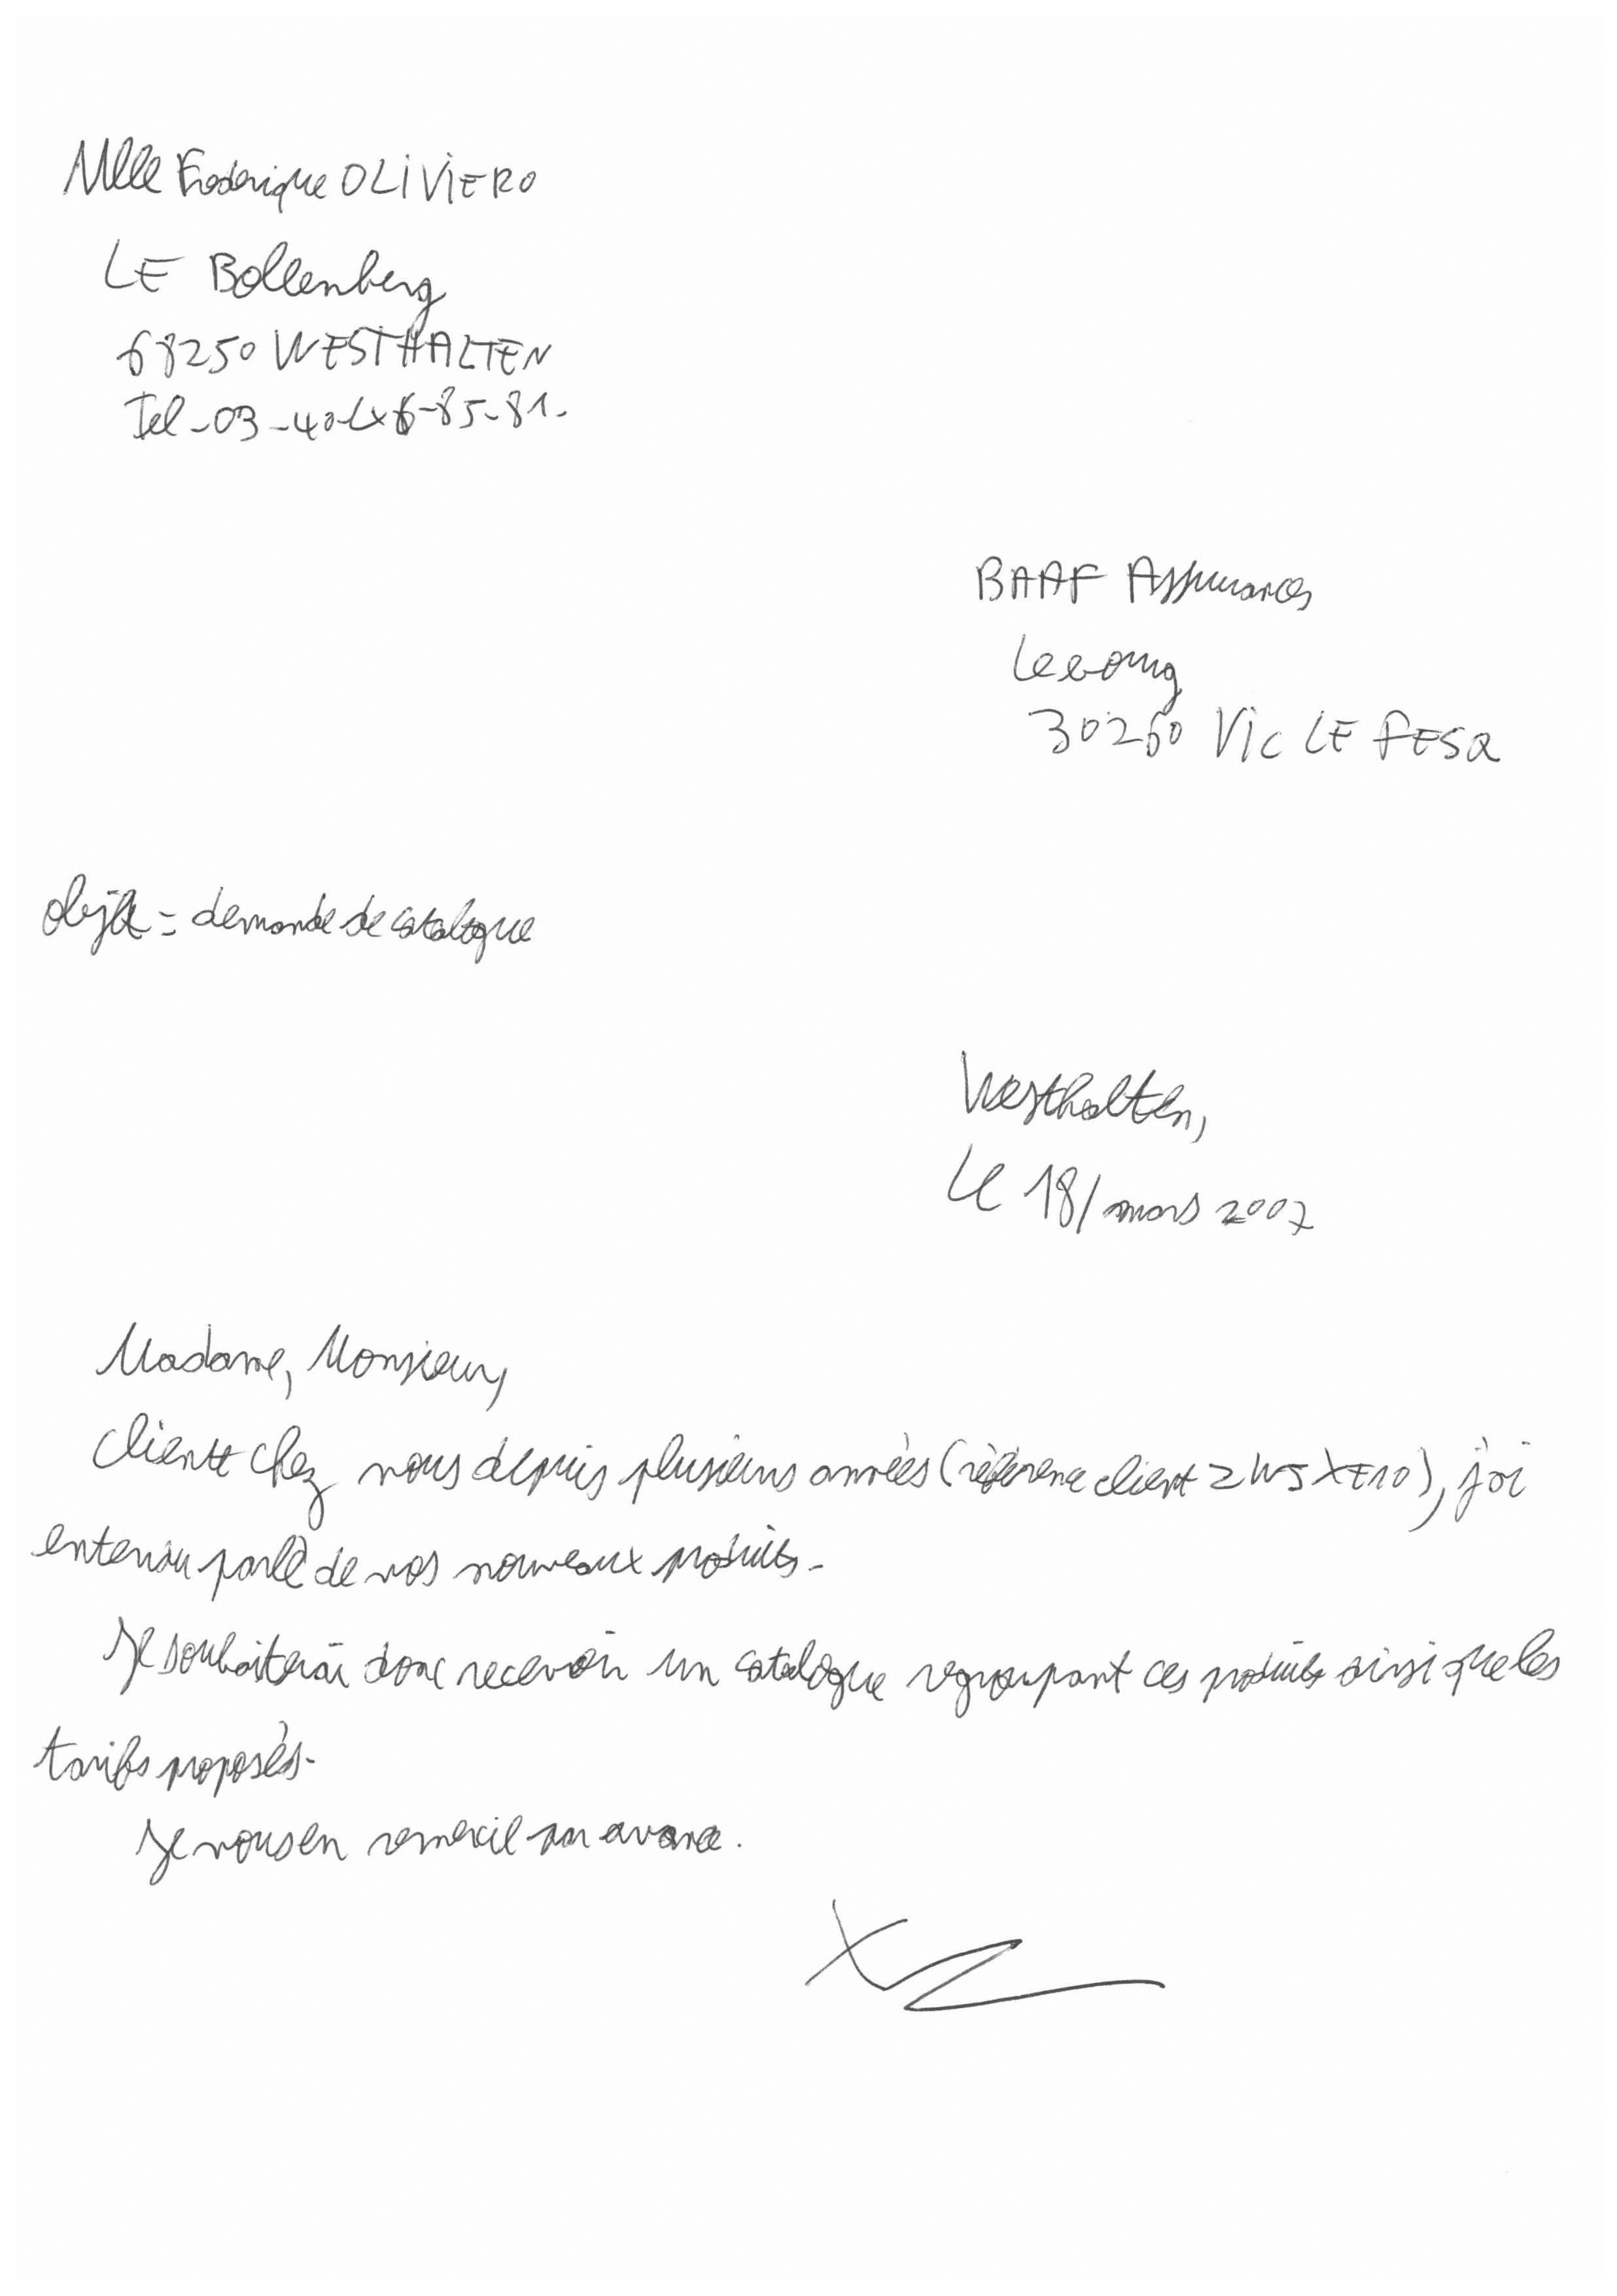 Mlle Frederique OLIVIERO
LE Bollenberg
68250 WESTHALTEN
Tel-03-40-46-85-81.
BAAF Assurances
Le bourg
30260 Vic LE FESQ
objet = demande de catalogue
Westhalten,
Le 18/ mars 2007
Madame, Monsieur,
Cliente chez vous depuis plusieurs années (référence client ZWJXE10), j'ai
entendu parlé de vos nouveaux produits.
Je souhaiterai donc recevoir un catalogue regroupant ces produits ainsi que les
tarifs proposés.
Je vous en remercie par avance.